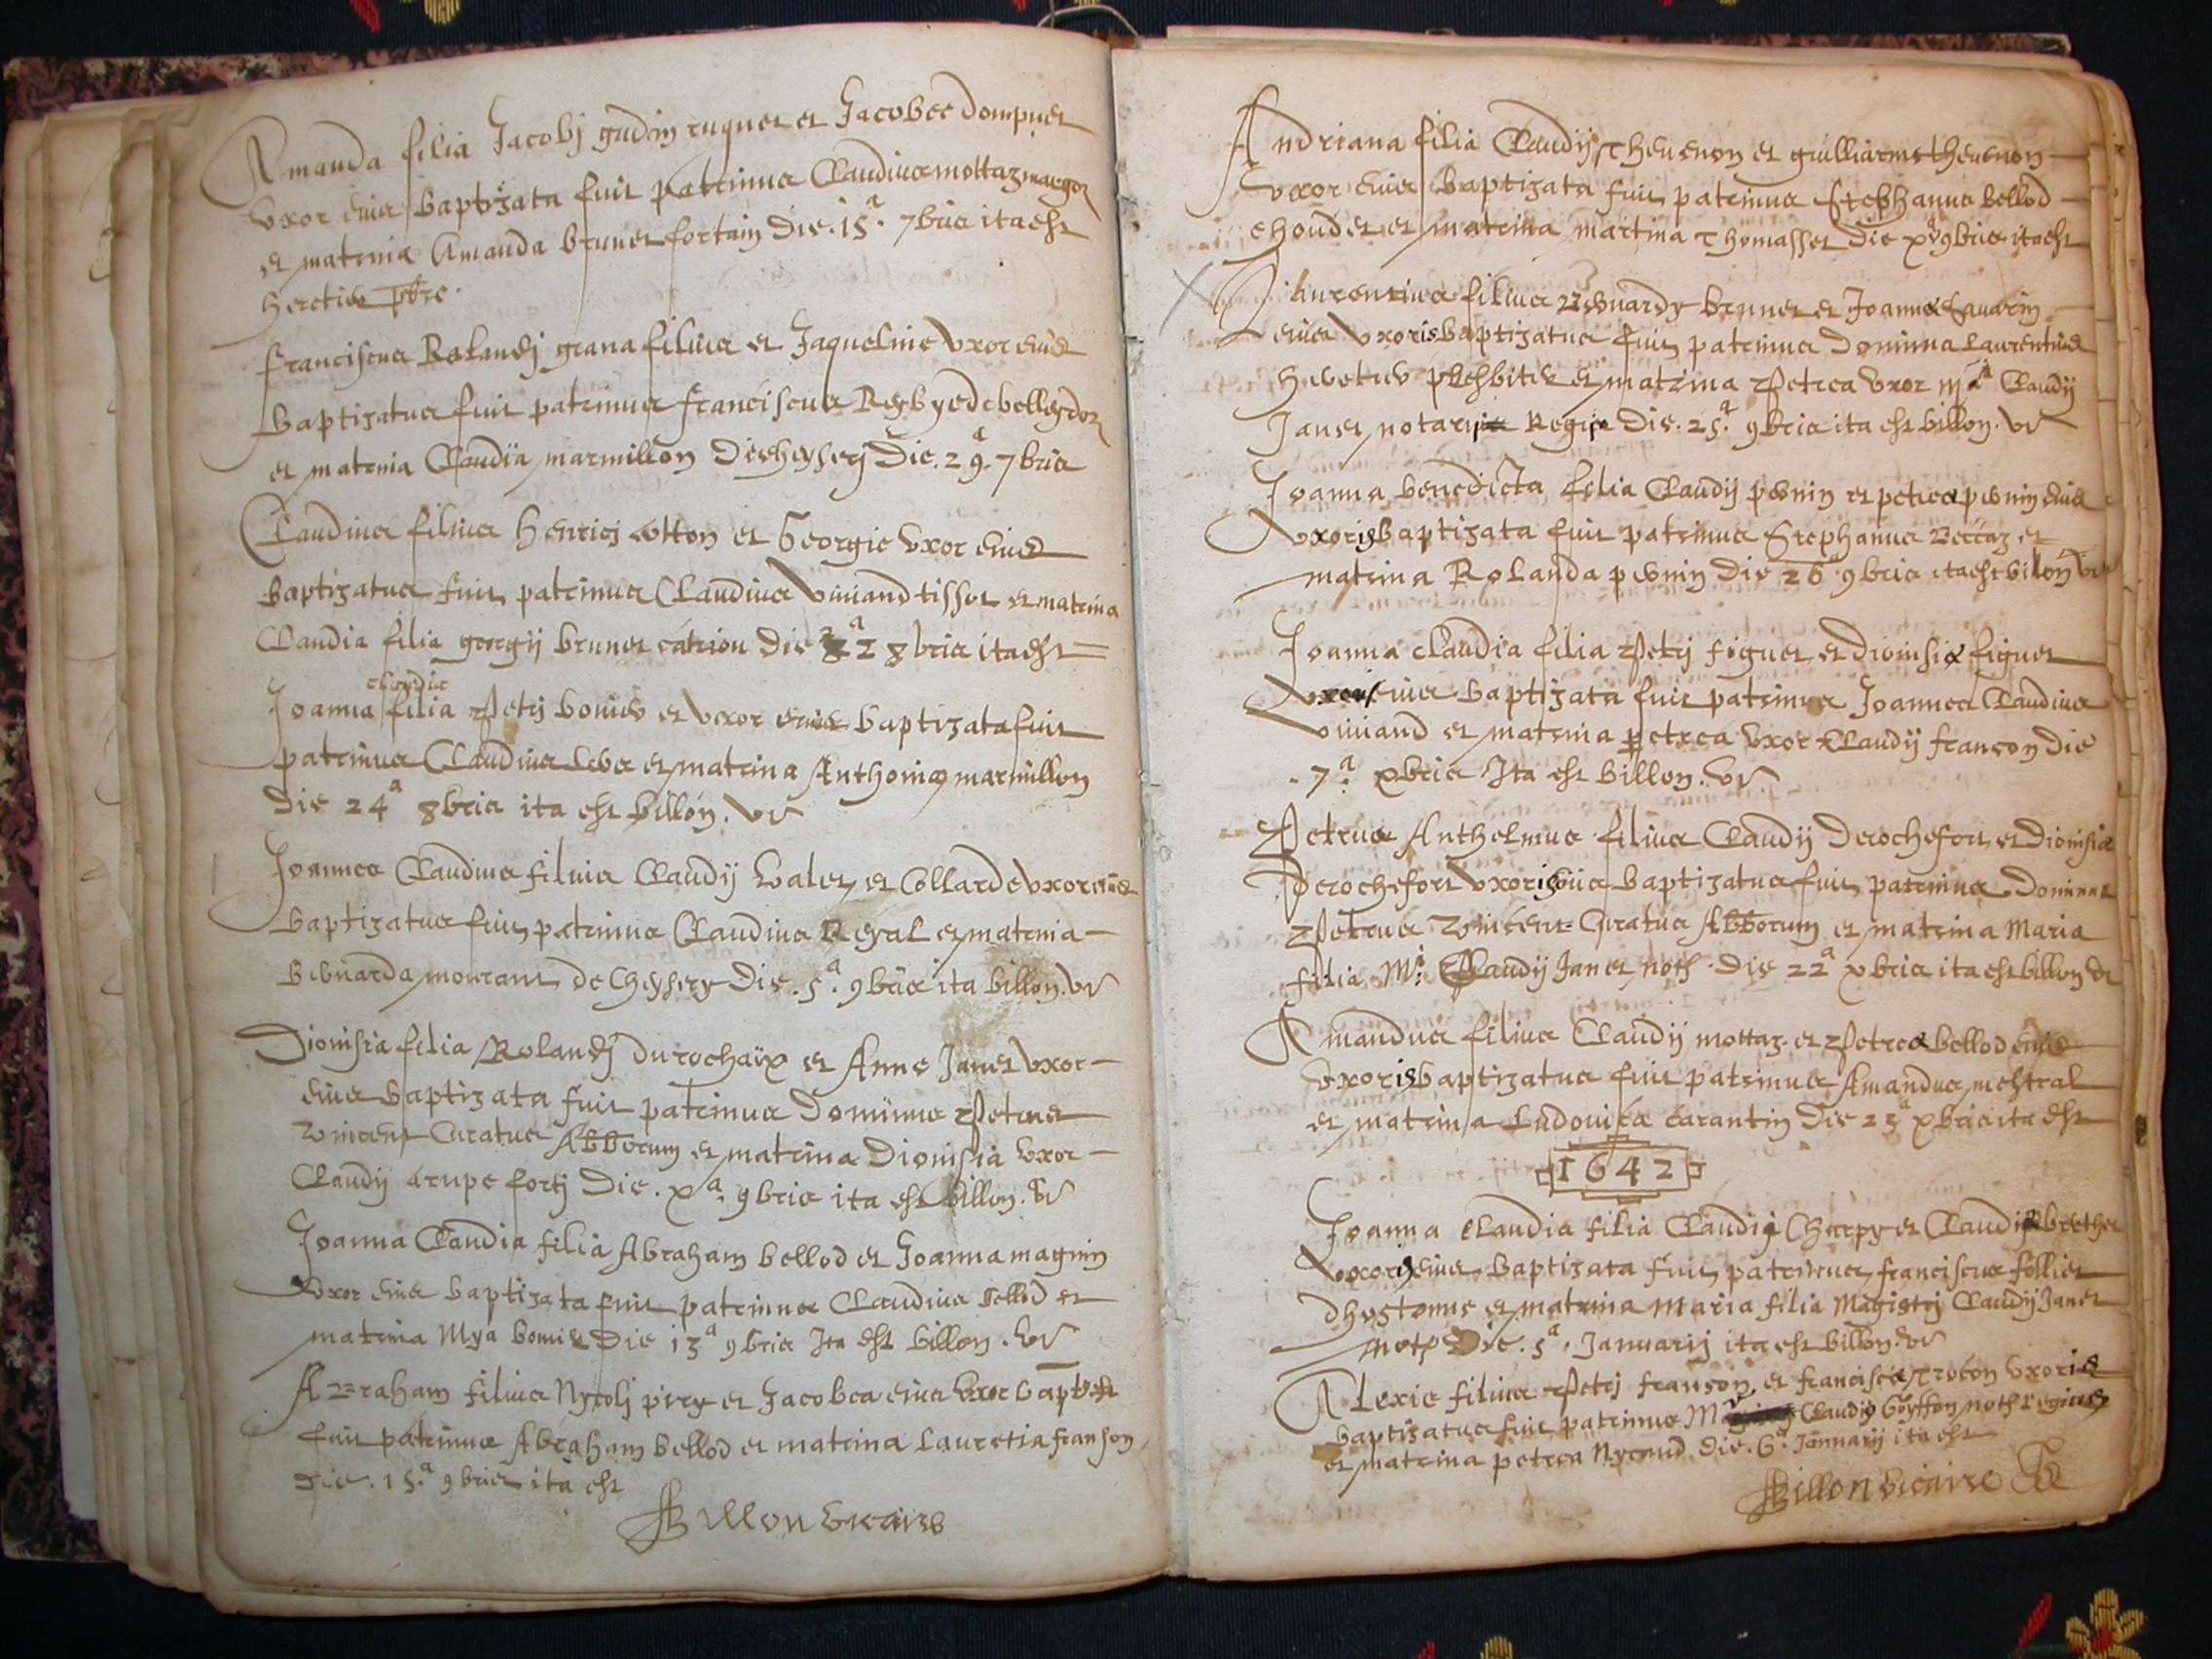 Amanda filia Jacobj gudin ruquet et Jacobee dompuet
uxor eius baptizata fuit patrinus Claudius mottaz maegoz
et matrina Amanda brunet fortain die. 15.a 7bris ita est
pbre.
Franciscus Rolandj grana filius et Jaqueline uxor eius
baptizatus fuit patrinus Franciscus Reybyede belleydoz
et matrina Claudia marmillon die 29.a 7bris
Claudius filius Henricj otton et Georgie uxor eius
baptizatus fuit patrinus Claudius Viviand tissot et matrina
Claudia filia georgij brunet catrion die 22a 8bris ita est
claudia
Joanna filia Petrj et uxor eius baptizata fuit
patrinus Claudius et matrina Anthonia marmillon
die 24a 8bris ita est billon. vic
Joannes Claudius filius Claudij Valet et Collarde uxor eius
baptizatus fuit patrinus Claudius Reyal et matrina
bernarda mourant de Cheysery die. 5.a 9bris ita billon. vic
Dionisia filia Rolandj durochaix et Anne Janet uxor
eius baptizata fuit patrinus Dominus Petrus
Vincent Curatus Abborum et matrina Dionisia uxor
Claudij crupe fortj die. xa. 9bris ita est billon. vic
Joanna Claudia filia Abraham bellod et Joanna magnin
uxor eius baptizata fuit patrinus Claudius bellod et
matrina Mya die 13a 9bris Ita est billon. vic
Abraham filius Nycolj piry et Jacobea eius uxor baptizatus
fuit patrinus Abraham bellod et matrina Lauretia franson
die. 15.a 9bris ita est
Billon vicaire
Andriana filia Claudij Thevenon et guilliarme thevenon
uxor eius baptizata fuit patrinus Stephanus bellod
chouder et matrina martina Thomasset die xa 9bris ita est
Laurentius filius Bernardy brunet et Joanna Savarin
eius uxoris baptizatus fuit patrinus Dominus Laurentius
presbiter et matrina Petrea uxor Claudij
Janet notarij Regij die. 25.a 9bris ita est billon. vic
Joanna benedicta filia Claudij pernin et petrea pernin eius
uxoris baptizata fuit patrinus Stephanus et
matrina Rolanda pernin die 26a 9bris ita est bilon vic
Joanna Claudia filia Petrj figuet et dionisia figuet
uxoris eius baptizata fuit patrinus Joannes Claudius
Viviand et matrina petrea uxor Claudij franson die
.7.a xbris Ita est billon. vic
Petrus Anthelmus filius Claudij Derochefort et Dionisia
Derochefort uxoris eius baptizatus fuit patrinus Dominus
Petrus Vincent Curatus Abborum et matrina Maria
filia M. Claudij Janet noth. die 22a xbris ita est billon vic
Amandus filius Claudij mottaz et Petrea bellod eius
uxoris baptizatus fuit patrinus Amandus mestral
et matrina Ludovica carantin die 23a xbris ita est
1642
Joanna Claudia filia Claudij Charpy et Claudia
uxoris eius baptizata fuit patrinus franciscus follier
dhostonne et matrina Maria filia Magistrj Claudij Janet
noth. Die. 5a. Januarij ita est billon. vic
Alexis filius Petrj franson et francisca Trocon uxoris
baptizatus fuit patrinus M Claudius Goyffon noth regius
et matrina petrea Nycoud die. 6a Januarij ita est
Billon vicaire